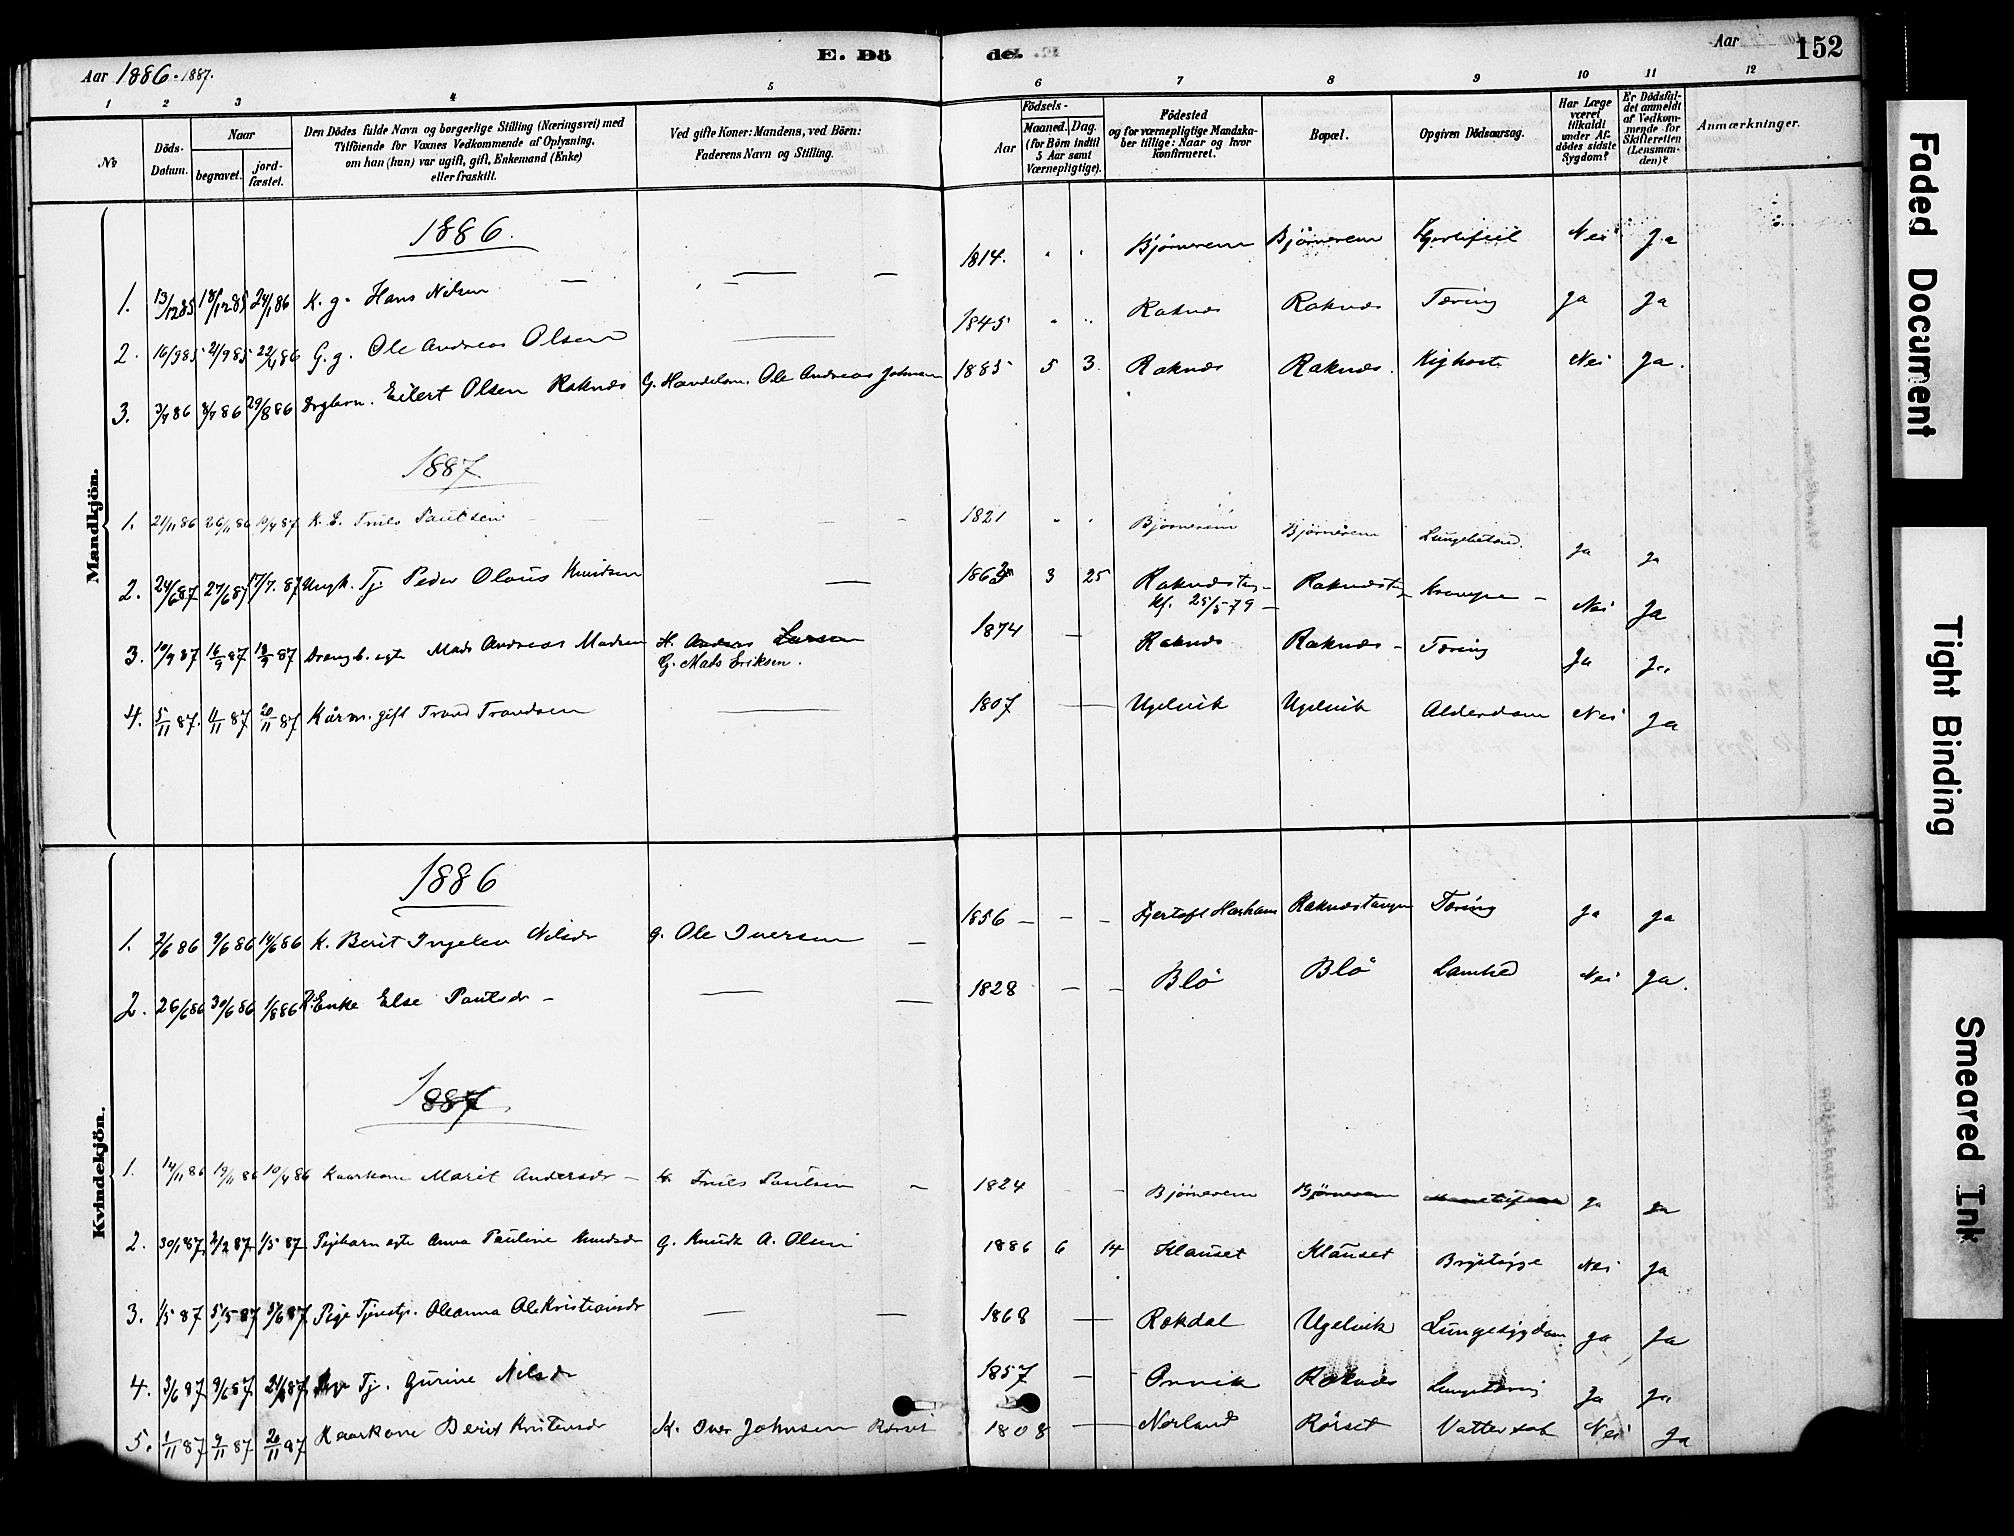 E. Dö de.
Aar 1886-1887.
Aar 152
1 2 3 4 5 6 7 8 9 10 11 12
No
Döds-Datum.
Naar
begravet.
jord-fæstet.
Den Dödes fulde Navn og borgerlige Stilling (Næringsvei) med
Tilföiende for Voxnes Vedkommende af Oplysning,
om han (hun) var ugift, gift, Enkemand (Enke)
eller fraskilt.
Ved gifte Koner: Mandens, ved Börn:
Faderens Navn og Stilling.
Födsels-
Aar
Maaned. Dag.
(for Börn indtil
5 Aar samt
Værnepligtige).
Födested
og for værnepligtige Mandska-
ber tillige: Naar og hvor
konfirmeret.
Bopæl.
Opgiven Dödsaarsag.
Har Læge
været
tilkaldt
under Af-
dödes sidste
Sygdom?
Er Dödsfal-
det anmeldt
af Vedkom-
mende for
Skifteretten
(Lensman-
den)?
Anmærkninger.
Mandkjön.
1886.
1. 13/12 85 18/12 85 24/1 86 K. g. Hans Nilsen 1814. Björnerem Björnerem Nei Ja
2. 16/9 85 21/9 85 22/4 86 G. g. Ole Andreas Olsen 1845 Raknes Raknes Tæring Ja Ja
3. 29/8 86 Drgbarn. Eilert Olsen Raknes G. Handelsm. Ole Andreas Johnsen 1885 5 3 Raknes Raknes. Kighoste Nei Ja.
1887
1. 21/11 86 26/11 86 10/4 87 K. E. Truls Paulsen 1821 Björnerem Björnerem Ja Ja
2. 24/6 87 27/6 87 17/7. 87 Ungk. Tj Peder Olaus Knudsen 3 25 Raknestang- Kf. 25/5 79 - Raknestg Krampe - Nei Ja
3. 10/9 87 16/9 87 18/9 87 Drengb. egte Mads Andreas Madsen H. Anders Larsen G. Mads Eriksen. 1874 Raknes Raknes - Tæring Ja Ja
4. 5/11 87. 11/11 87 20/11 87 Kårm. gift Trond Trondsen 1807 Ugelvik Ugelvik Alderdom Nei Ja
Kvindekjön.
1886
1. 2/6 86 9/6 86 14/6 86 K. Berit Ingeleu Nilsdr g. Ole Iversen 1856 Fjertoft Harham Raknestangen Tæring Ja Ja
2. 26/6 86 30/6 86 1/8 86 Enke Else Paulsdr 1828 Blö Blö Nei Ja.
1887
1. 14/11 86 19/11 86 10/4 86 Kaarkone Marit Andersdr K. Truls Paulsen 1824 Björnerem Björnerem Ja Ja
2. 30/1 87 1/5 87 Pigebarn egte Anna Pauline Knudsdr G. Knudt A. Olsen 1886 6 14 Klauset Klauset Nei Ja
3. 1/5 87 5/5 87 5/6 87 Pige Tjenstp. Oleanna OleKristiansdr 1868 Rekdal Ugelvik Lungesygdom Ja Ja
4. 3/6 87 9/6 87 Tj. Gurine Nilsdr 1857 Orvik Raknes Lungetæring Ja Ja
5. 1/11 87 9/11 87 20/11 87 Kaarkone Berit Knutsdr K. Iver Johnsen Rörset 1808 Norland Rörset Vattersot Nei Ja
Faded Document
Tight Binding
Smeared Ink